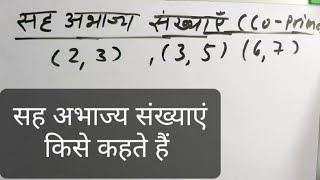 सह अभाज्य संख्याएँ (Co-Prime
(2, 3) , (3, 5) (6, 7)
सह अभाज्य संख्याएं
किसे कहते हैं